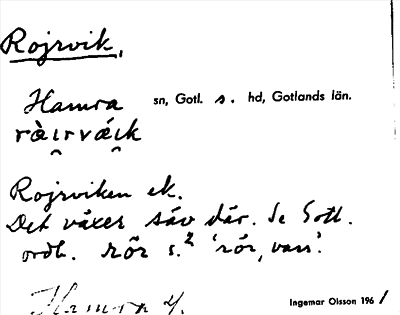 Rojrvik.
Hamra sn, Gotl. s. hd, Gotlands län.
ràɪrváɪk
Rojrviken ek.
Det växer säv där. Se Gotl.
ordb. rör s.² 'rör, vass'.
Hamra 4.
Ingemar Olsson 196 /